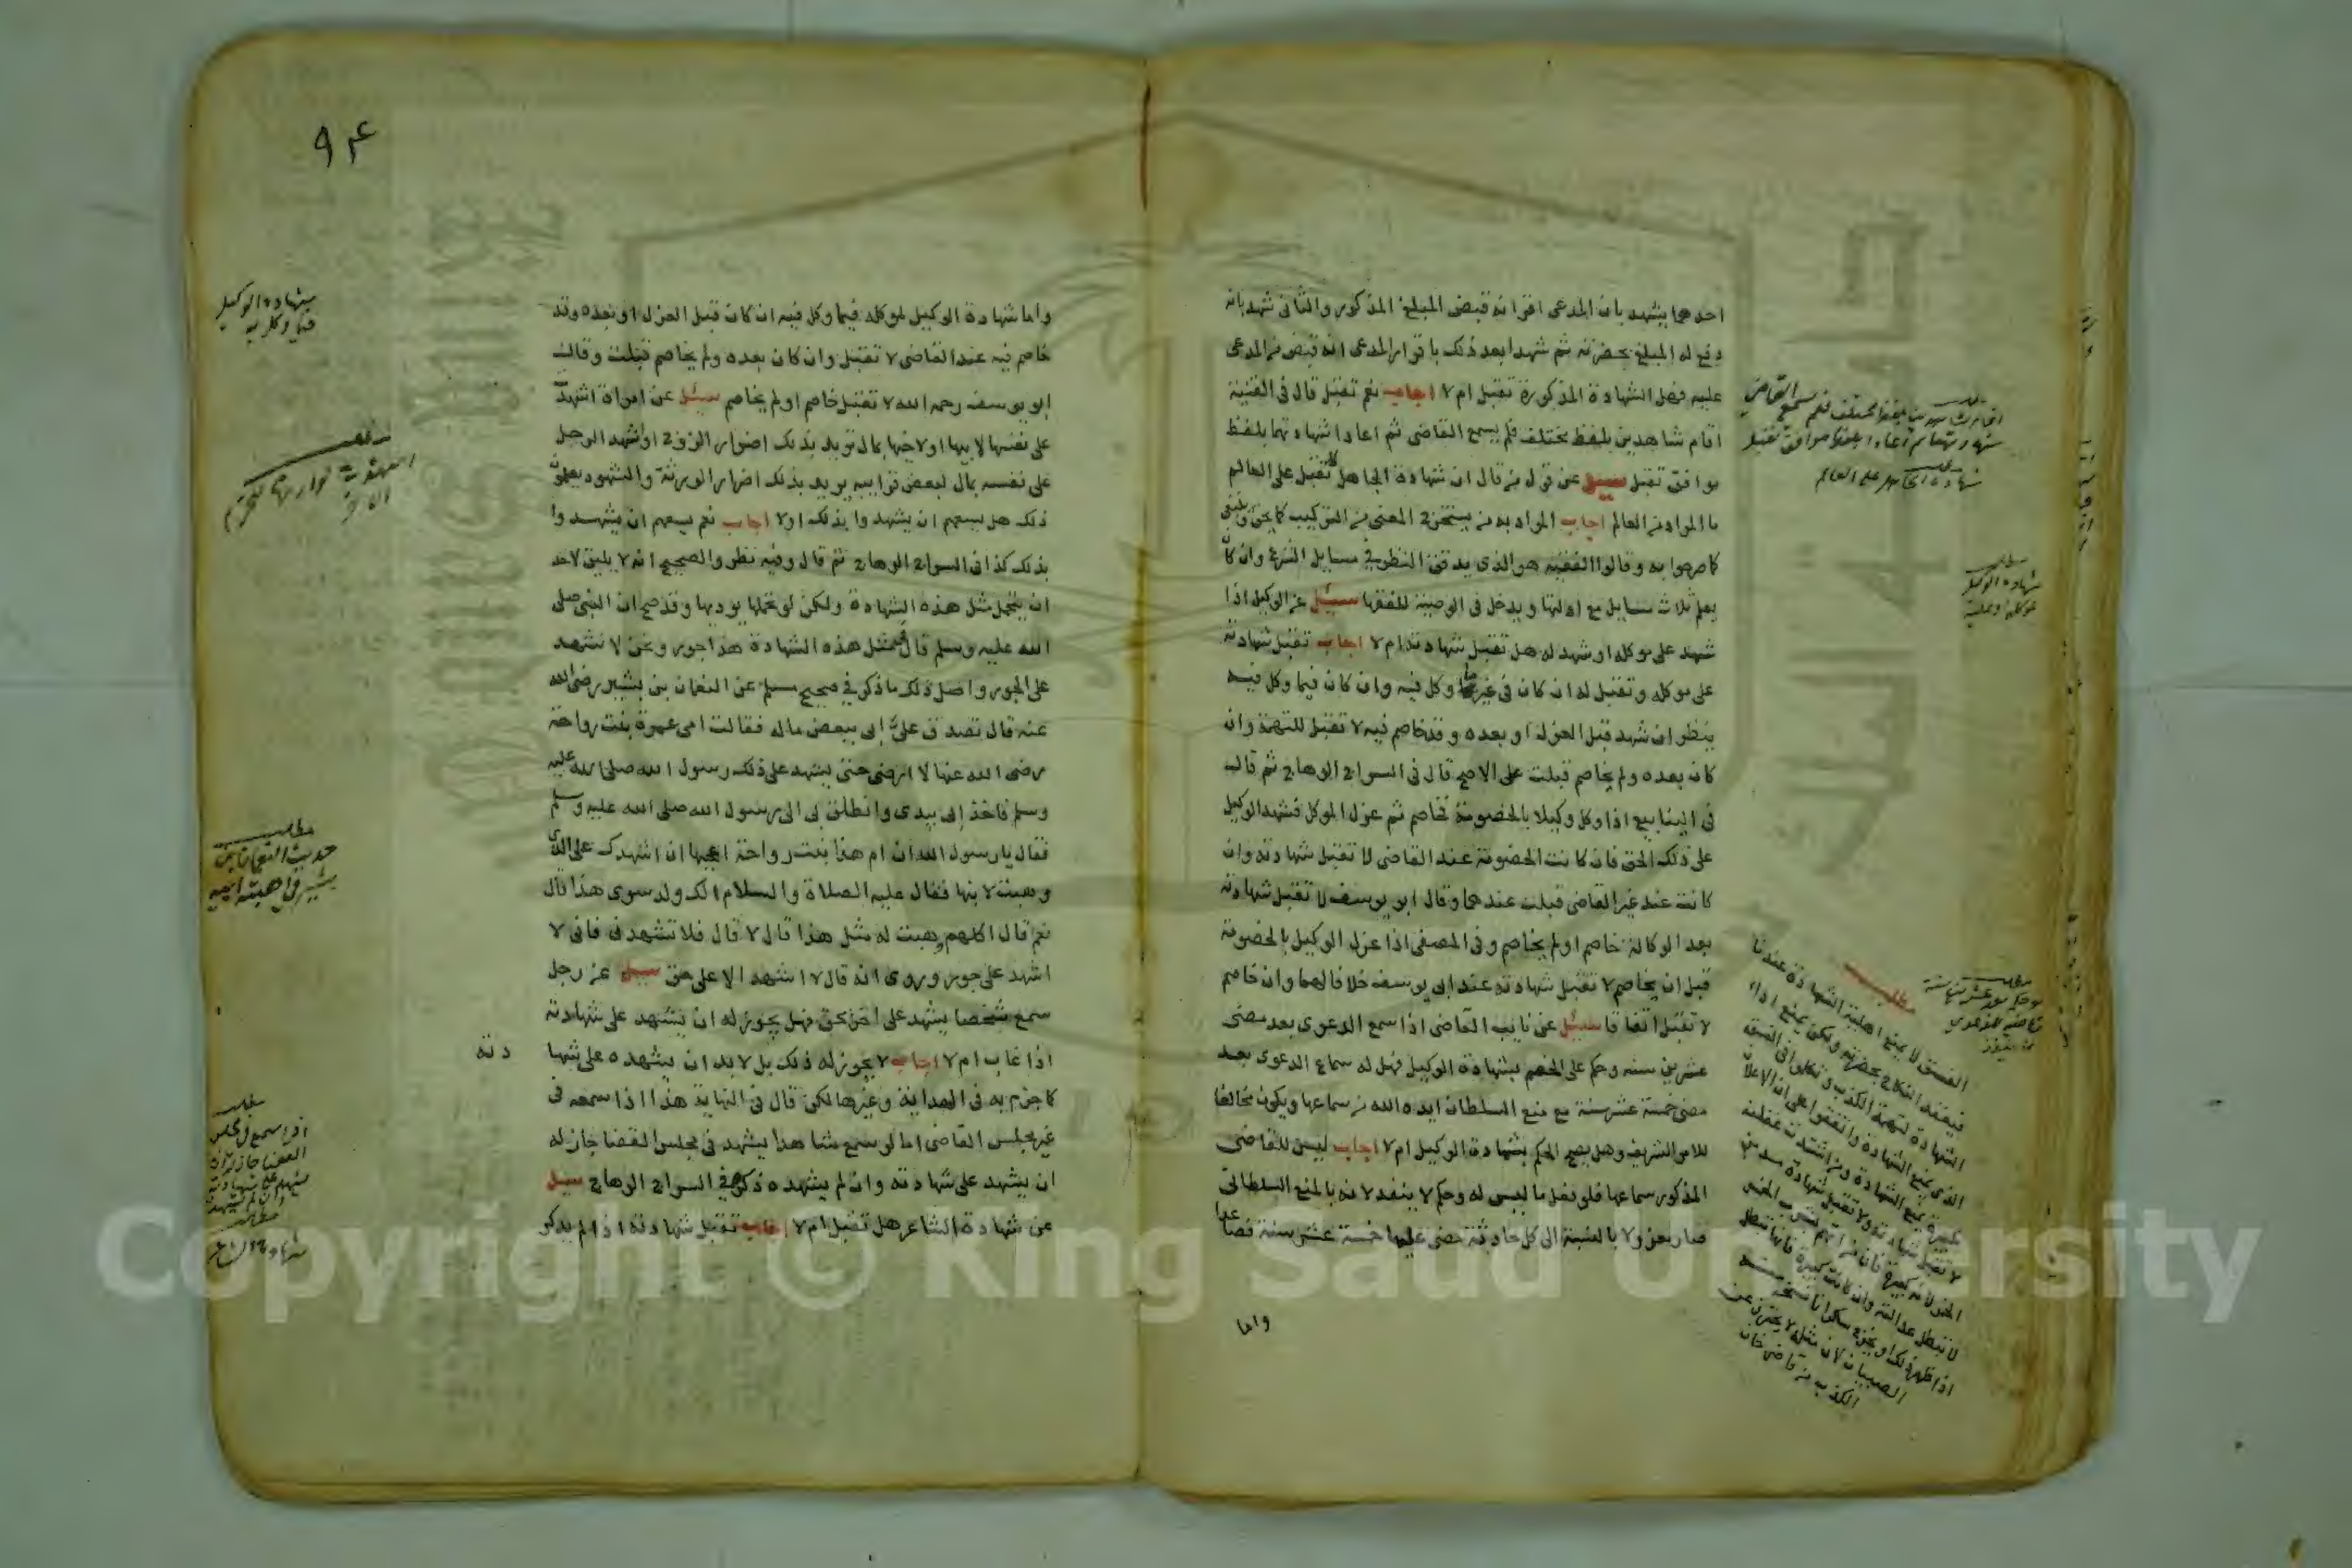 احدهما يشهد بان المدعى اقر انه قبض المبلغ المذكور والثانى شهد بانه
دفع له المبلغ بحضرته ثم شهدا بعد ذلك باقرار المدعى انه قبض من المدعى
عليه فهل الشهادة المذكورة تقبل ام لا اجاب نعم تقبل قال فى القنية
اقام شاهدين بلفظ مختلف فلم يسمع القاضى ثم اعادا شهادتهما بلفظ
موافق تقبل سيل عن قول من قال ان شهادة الجاهل لا تقبل على العالم
ما المراد من العالم اجاب المراد به من يستخرج المعنى من التركيب كما يحق وينبغى
كما صرحوا به وقالوا الفقيه هو الذى يدقق النظر فى مسايل الشرع وان كان
يعلم ثلاث مسايل مع ادلتها ويدخل فى الوصية للفقها سيل عن الوكيل اذا
شهد على موكله او شهد له هل تقبل شهادته ام لا اجاب تقبل شهادته
على موكله وتقبل له ان كان فى غير ما وكل فيه وان كان فيما وكل فيه
ينظر ان شهد قبل العزل او بعده وقد خاصم فيه لا تقبل للتهمة وان
كان بعده ولم يخاصم قبلت على الاصح قال فى السراج الوهاج ثم قال
فى الينابيع اذا وكل وكيلا بالخصومة فخاصم ثم عزل الموكل فشهد الوكيل
على ذلك الحق فان كانت الخصومة عند القاضى لا تقبل شهادته وان
كانت عند غير القاضى قبلت عندهما وقال ابو يوسف لا تقبل شهادته
بعد الوكالة خاصم او لم يخاصم وفى المصفى اذا عزل الوكيل بالخصومة
قبل ان يخاصم لا تقبل شهادته عند ابى يوسف خلافا لهما وان خاصم
لا تقبل اتفاقا سيل عن نايب القاضى اذا سمع الدعوى بعد مضى
عشرين سنه وحكم على الخصم بشهادة الوكيل فهل له سماع الدعوى بعد
مضى خمسة عشر سنة مع منع السلطان ايده الله من سماعها ويكون مخالفا
للامر الشريف وهل يصح الحكم بشهادة الوكيل ام لا اجاب ليس للقاضى
المذكور سماعها فلو فعل ما ليس له وحكم لا ينفد لانه بالمنع السلطانى
صار معزولا بالنسبة الى كل حادثة مضى عليها خمسة عشر سنة فصاعدا
واما
شهادة الجاهل على العالم
شهادة الوكيل
مطلب
الفسق لا يمنع اهلية الشهادة عندنا
فينعقد النكاح بحضرته ولكن يمنع اداء
الشهادة لتهمة الكذب وتكلموا فى الفسق
الذى يمنع الشهادة واتفقوا على ان الاعلان
بكبيرة يمنع الشهادة
الكذب من قاضى خان
٩٤
واما شهادة الوكيل لموكله فيما وكل فيه ان كان قبل العزل او بعده وقد
خاصم فيه عند القاضى لا تقبل وان كان بعده ولم يخاصم قبلت وقال
ابو يوسف رحمه الله لا تقبل خاصم او لم يخاصم سيل عن امراة اشهدت
على نفسها لابيها او لاخيها بمال تريد بذلك اضرار الزوج او اشهد الرجل
على نفسه بمال لبعض قرابته يريد بذلك اضرار الورثة والشهود يعلمون
ذلك هل يسعهم ان يشهدوا بذلك او لا اجاب نعم يسعهم ان يشهدوا
بذلك كذا فى السراج الوهاج ثم قال وفيه نظر والصحيح انه لا يليق لاحد
ان يتحمل مثل هذه الشهادة ولكن لو تحملها يوديها وقد صح ان النبى صلى
الله عليه وسلم قال لمثل هذه الشهادة هذا جور ونحن لا نشهد
على الجور واصل ذلك ما ذكر فى صحيح مسلم عن النعمان بن بشير رضى الله
عنه قال تصدق علىّ ابى ببعض ماله فقالت امى عمرة بنت رواحة
رضى الله عنها لا ارضى حتى يشهد على ذلك رسول الله صلى الله عليه
وسلم فاخذ ابى بيدى وانطلق بى الى رسول الله صلى الله عليه وسلم
فقال يا رسول الله ان ام هذا بنت رواحة اعجبها ان اشهدك على الذى
وهبت لابنها فقال عليه الصلاة والسلام الك ولد سوى هذا قال
نعم قال اكلهم وهبت له مثل هذا قال لا قال فلا تشهدنى فانى لا
اشهد على جور وروى انه قال لا اشهد الا على حق سيل عن رجل
سمع شخصا يشهد على اخر بحق فهل يجوز له ان يشهد على شهادته
اذا غاب ام لا اجاب لا يجوز له ذلك بل لا بد ان يشهده على شها
دته
كما جزم به فى الهداية وغيرها لكن قال فى النهاية هذا اذا سمعه فى
غير مجلس القاضى اما لو سمع شاهدا يشهد فى مجلس القضا جاز له
ان يشهد على شهادته وان لم يشهده ذكره فى السراج الوهاج سيل
عن شهادة الشاعر هل تقبل ام لا اجاب تقبل شهادته اذا لم يذكر
شهادة الوكيل
فيما وكل به
مطلب
حديث النعمان بن
بشير فى هبته ابيه
مطلب
اذا سمع فى مجلس
القضا جاز له ان
يشهد على شهادته
وان لم يشهده
مطلب
شهادة الشاعر
Copyright © King Saud University